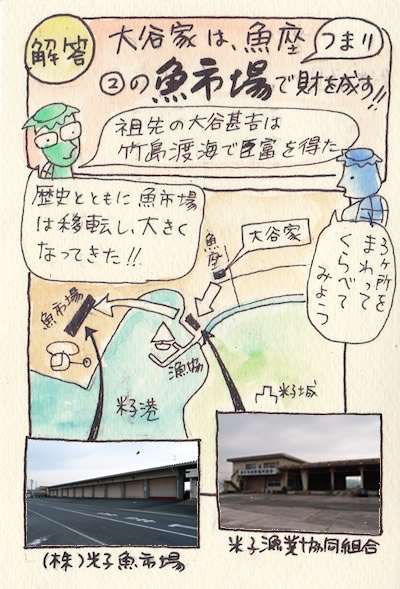 解答
大谷家は、魚座
つまり
②の魚市場で財を成す!!
祖先の大谷甚吉は
竹島渡海で巨富を得た
歴史とともに魚市場
は移転し、大きく
なってきた!!
3ヶ所を
まわって
くらべて
みよう
大谷家
魚座
魚市場
漁協
米子港
米子城
(株)米子魚市場
米子漁業協同組合